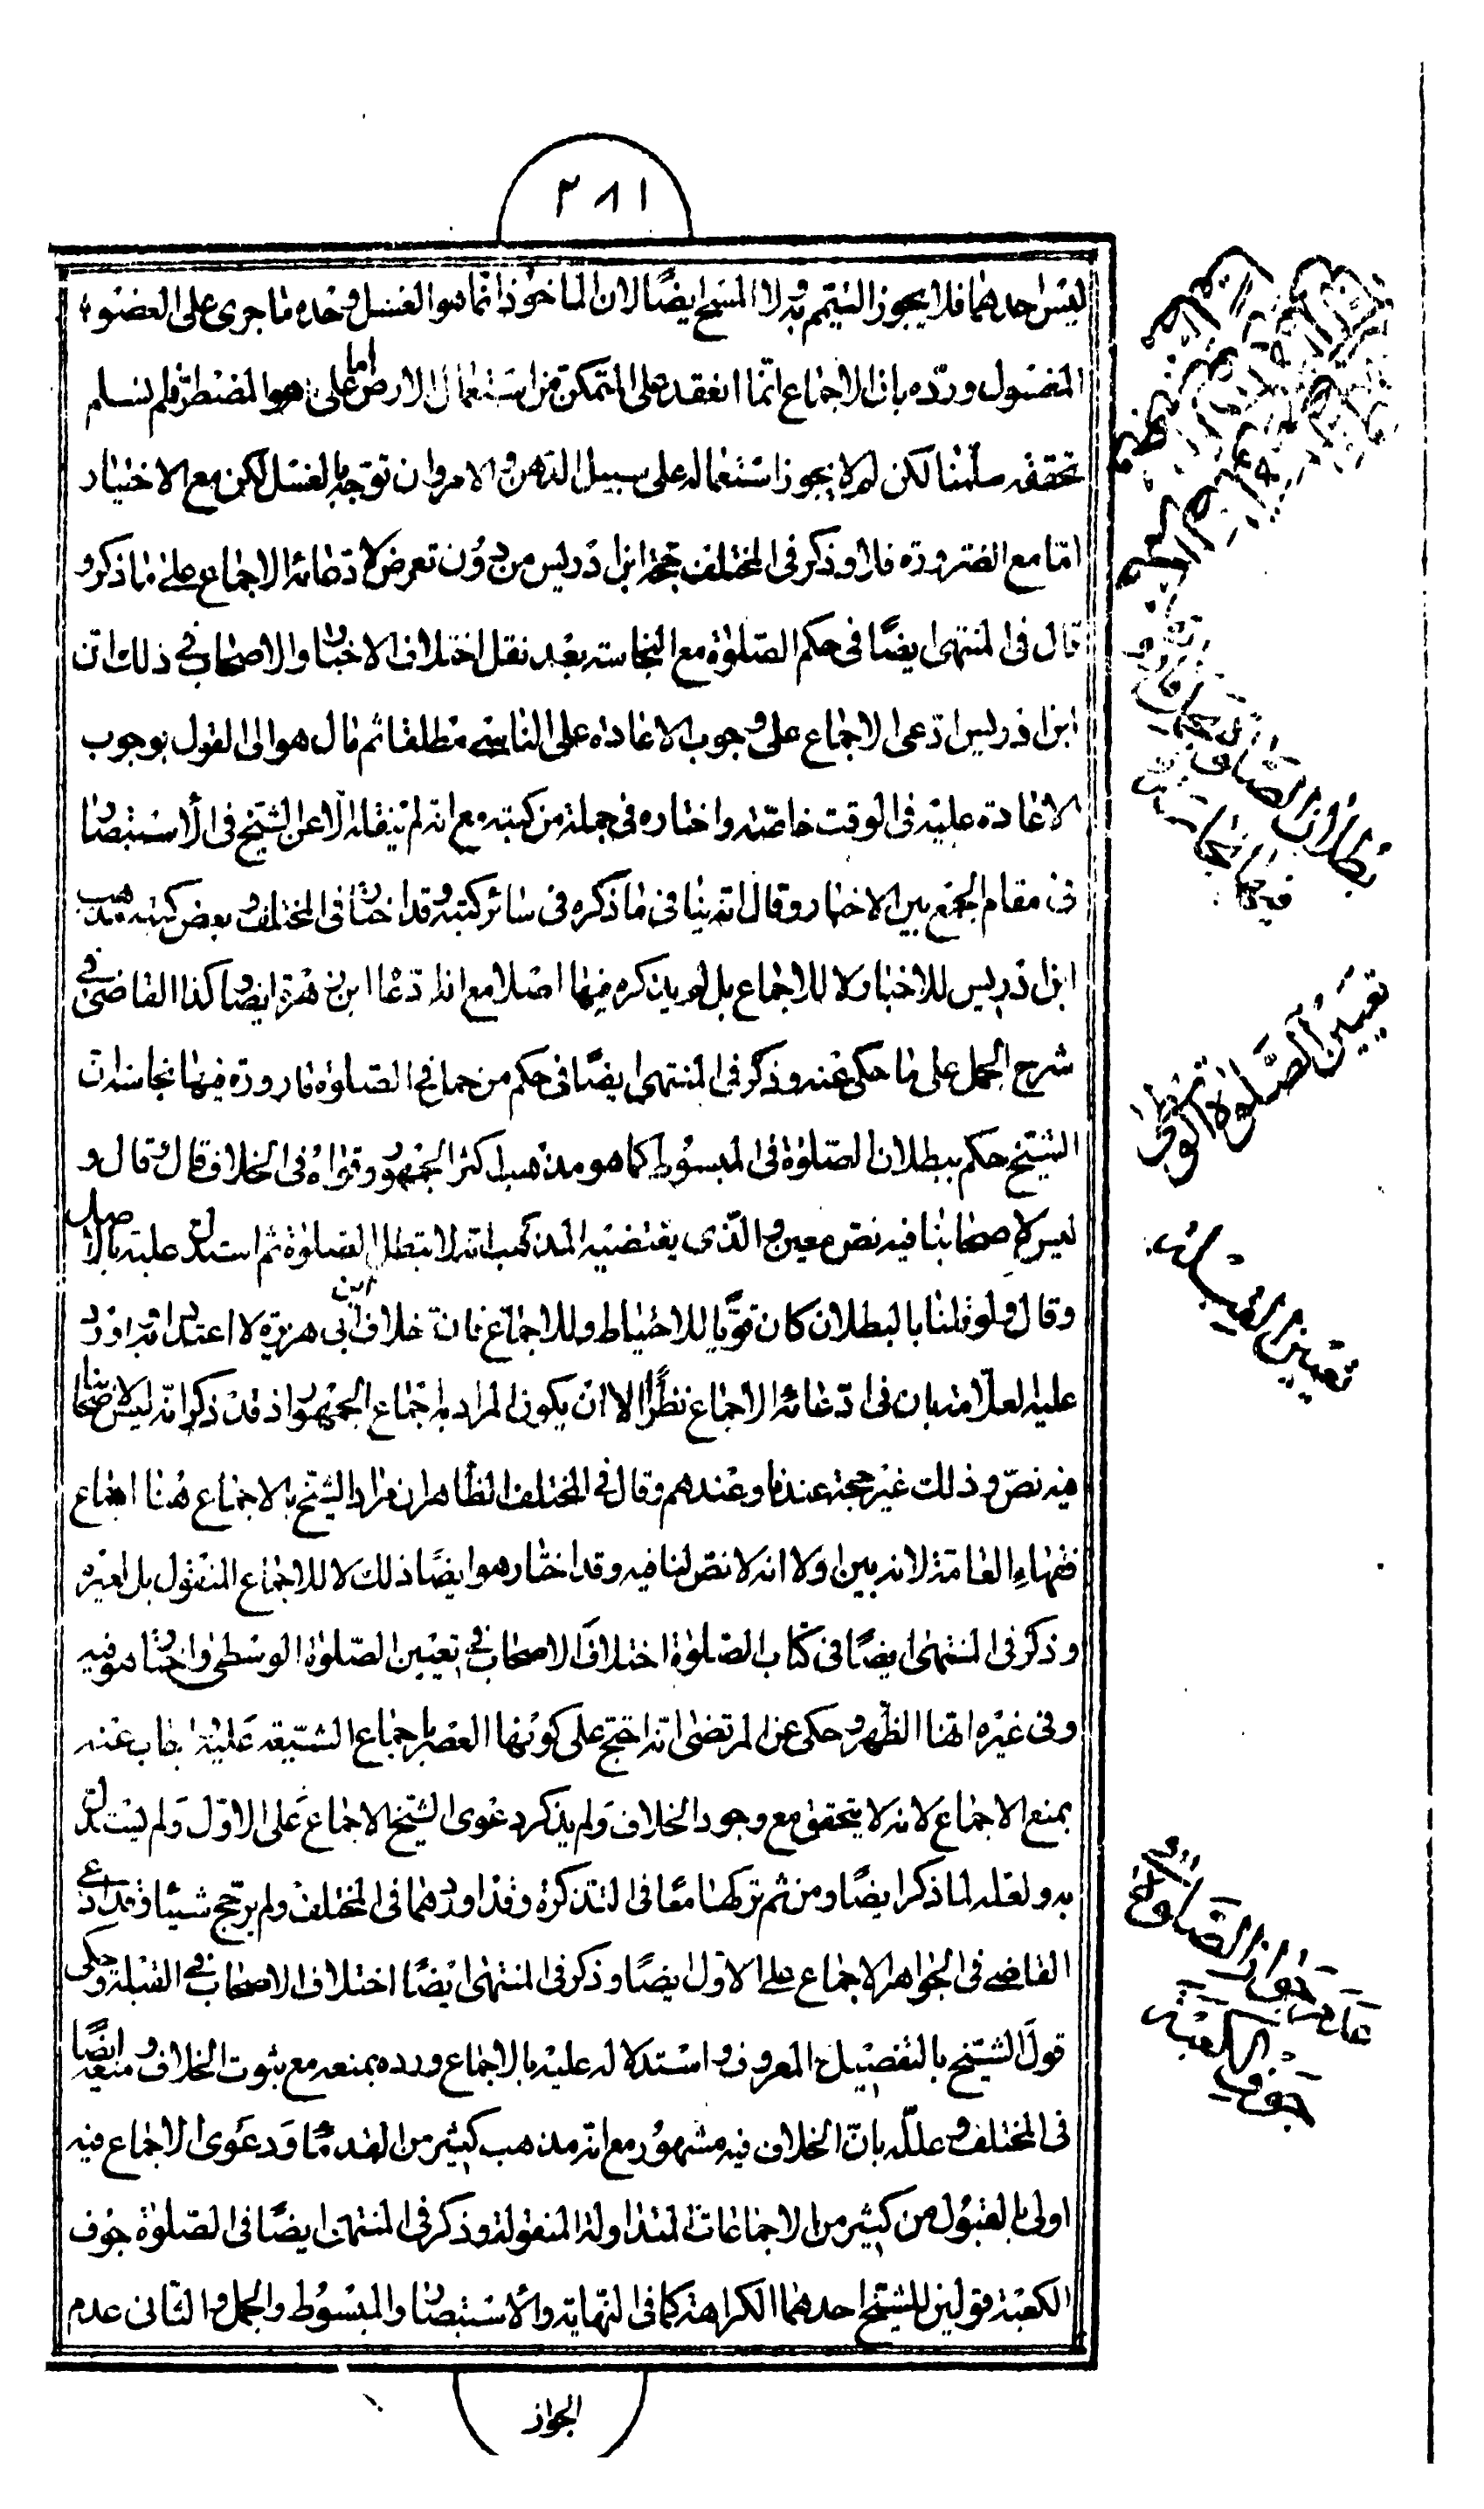 ٣٨١
ليس احدهما فلا يجوز التيمم به ولا المسح ايضا لان الماخوذ انما هو الغسل وحده ما جرى على العضو
المغسول ورده بان الاجماع انما انعقد على المتمكن من استعمال الارض اما على المضطر فلم نسلم
تحققه سلمنا لكن لم لا يجوز استعماله على سبيل الدهن والامر وان توجه بالغسل لكن مع الاختيار
امّا مع الضرورة فلا وذكر في المختلف حجة ابن ادريس من دون تعرض لادّعائه الاجماع على ما ذكر و
قال في المنتهى ايضًا في حكم الصّلوة مع النجاسة بعد نقل اختلاف الاخبار والاصحاب في ذلك انّ
ابن ادريس ادّعى الاجماع على وجوب الاعادة على الناسي مطلقا ثم مال هو الى القول بوجوب
الاعادة عليه في الوقت خاصّة واختاره في جملة من كتبه مع انه لم ينقله الّا عن الشيخ في الاستبصار
في مقام الجمع بين الاخبار وقال انه ينافي ما ذكره في سائر كتبه وقد اختار في المختلف وبعض كتبه مذهب
ابن ادريس للاخبار لا للاجماع بل لم يذكره فيها اصلا مع انه ادّعاه ابن زهرة ايضا وكذا القاضي في
شرح الجمل على ما حكى عنه وذكر في المنتهى ايضًا في حكم من حمل في الصّلوة قارورة فيها نجاسة انّ
الشيخ حكم ببطلان الصّلوة في المبسوط كما هو مذهب اكثر الجمهور وقوّاه في الخلاف قال وقال و
ليس لاصحابنا فيه نص معين والّذي يقتضيه المذهب انه لا تبطل الصلوة ثم استدل عليه بالاصل
وقال ولو قلنا بالبطلان كان قويّا للاحتياط وللاجماع فان خلاف ابن ابي هريرة لا اعتداد به واورد
عليه العلّامة بان في ادّعائه الاجماع نظرًا الا ان يكون المراد به اجماع الجمهور اذ قد ذكر انّه ليس لاصحابنا
فيه نصّ وذلك غير حجة عندنا وعندهم وقال في المختلف الظاهر ان مراد الشيخ بالاجماع هنا اجماع
فقهاء العامّة لانه بين اولا انه لا نص لنا فيه وقد اختار هو ايضًا ذلك لا للاجماع المنقول بل لغيره
وذكر في المنتهى ايضًا في كتاب الصّلوة اختلاف الاصحاب في تعيين الصّلوة الوسطى واختار هو فيه
وفي غيره انّها الظهر وحكى عن المرتضى انّه احتج على كونها العصر باجماع الشيعة عليه واجاب عنه
بمنع الاجماع لانه لا يتحقق مع وجود الخلاف ولم يذكر دعوى الشيخ الاجماع على الاوّل ولم يستدل
به ولعله لما ذكر ايضًا ومن ثم تركهما معًا في التذكرة وقد اوردهما في المختلف ولم يرجّح شيئًا وقد ادّعى
القاضي في الجواهر الاجماع على الاول ايضًا وذكر في المنتهى ايضًا اختلاف الاصحاب في القبلة وحكى
قول الشيخ بالتفصيل المعروف واستدلاله عليه بالاجماع ورده بمنعه مع ثبوت الخلاف ومنعه ايضًا
في المختلف وعلله بانّ الخلاف فيه مشهور مع انّه مذهب كثير من القدماء ودعوى الاجماع فيه
اولى بالقبول من كثير من الاجماعات المتداولة المنقولة وذكر في المنتهى ايضًا في الصّلوة جوف
الكعبة قولين للشيخ احدهما الكراهة كما في النّهاية والاستبصار والمبسوط والجمل والثاني عدم
الجواز
بطلان الصّلوة
تعيين الصّلوة الوسطى
تعيين القبلة
عدم جواز الصّلوة في
جوف الكعبة